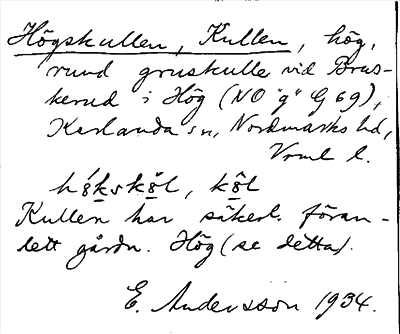 Högskullen, Kullen, hög,
rund gruskulle vid Brus-
kerud i Hög (NO "g" G 69),
Karlanda sn, Nordmarks hd,
Vrml l.
Kullen har säkerl. föran-
lett gårdn. Hög (se detta).
E. Andersson 1934.